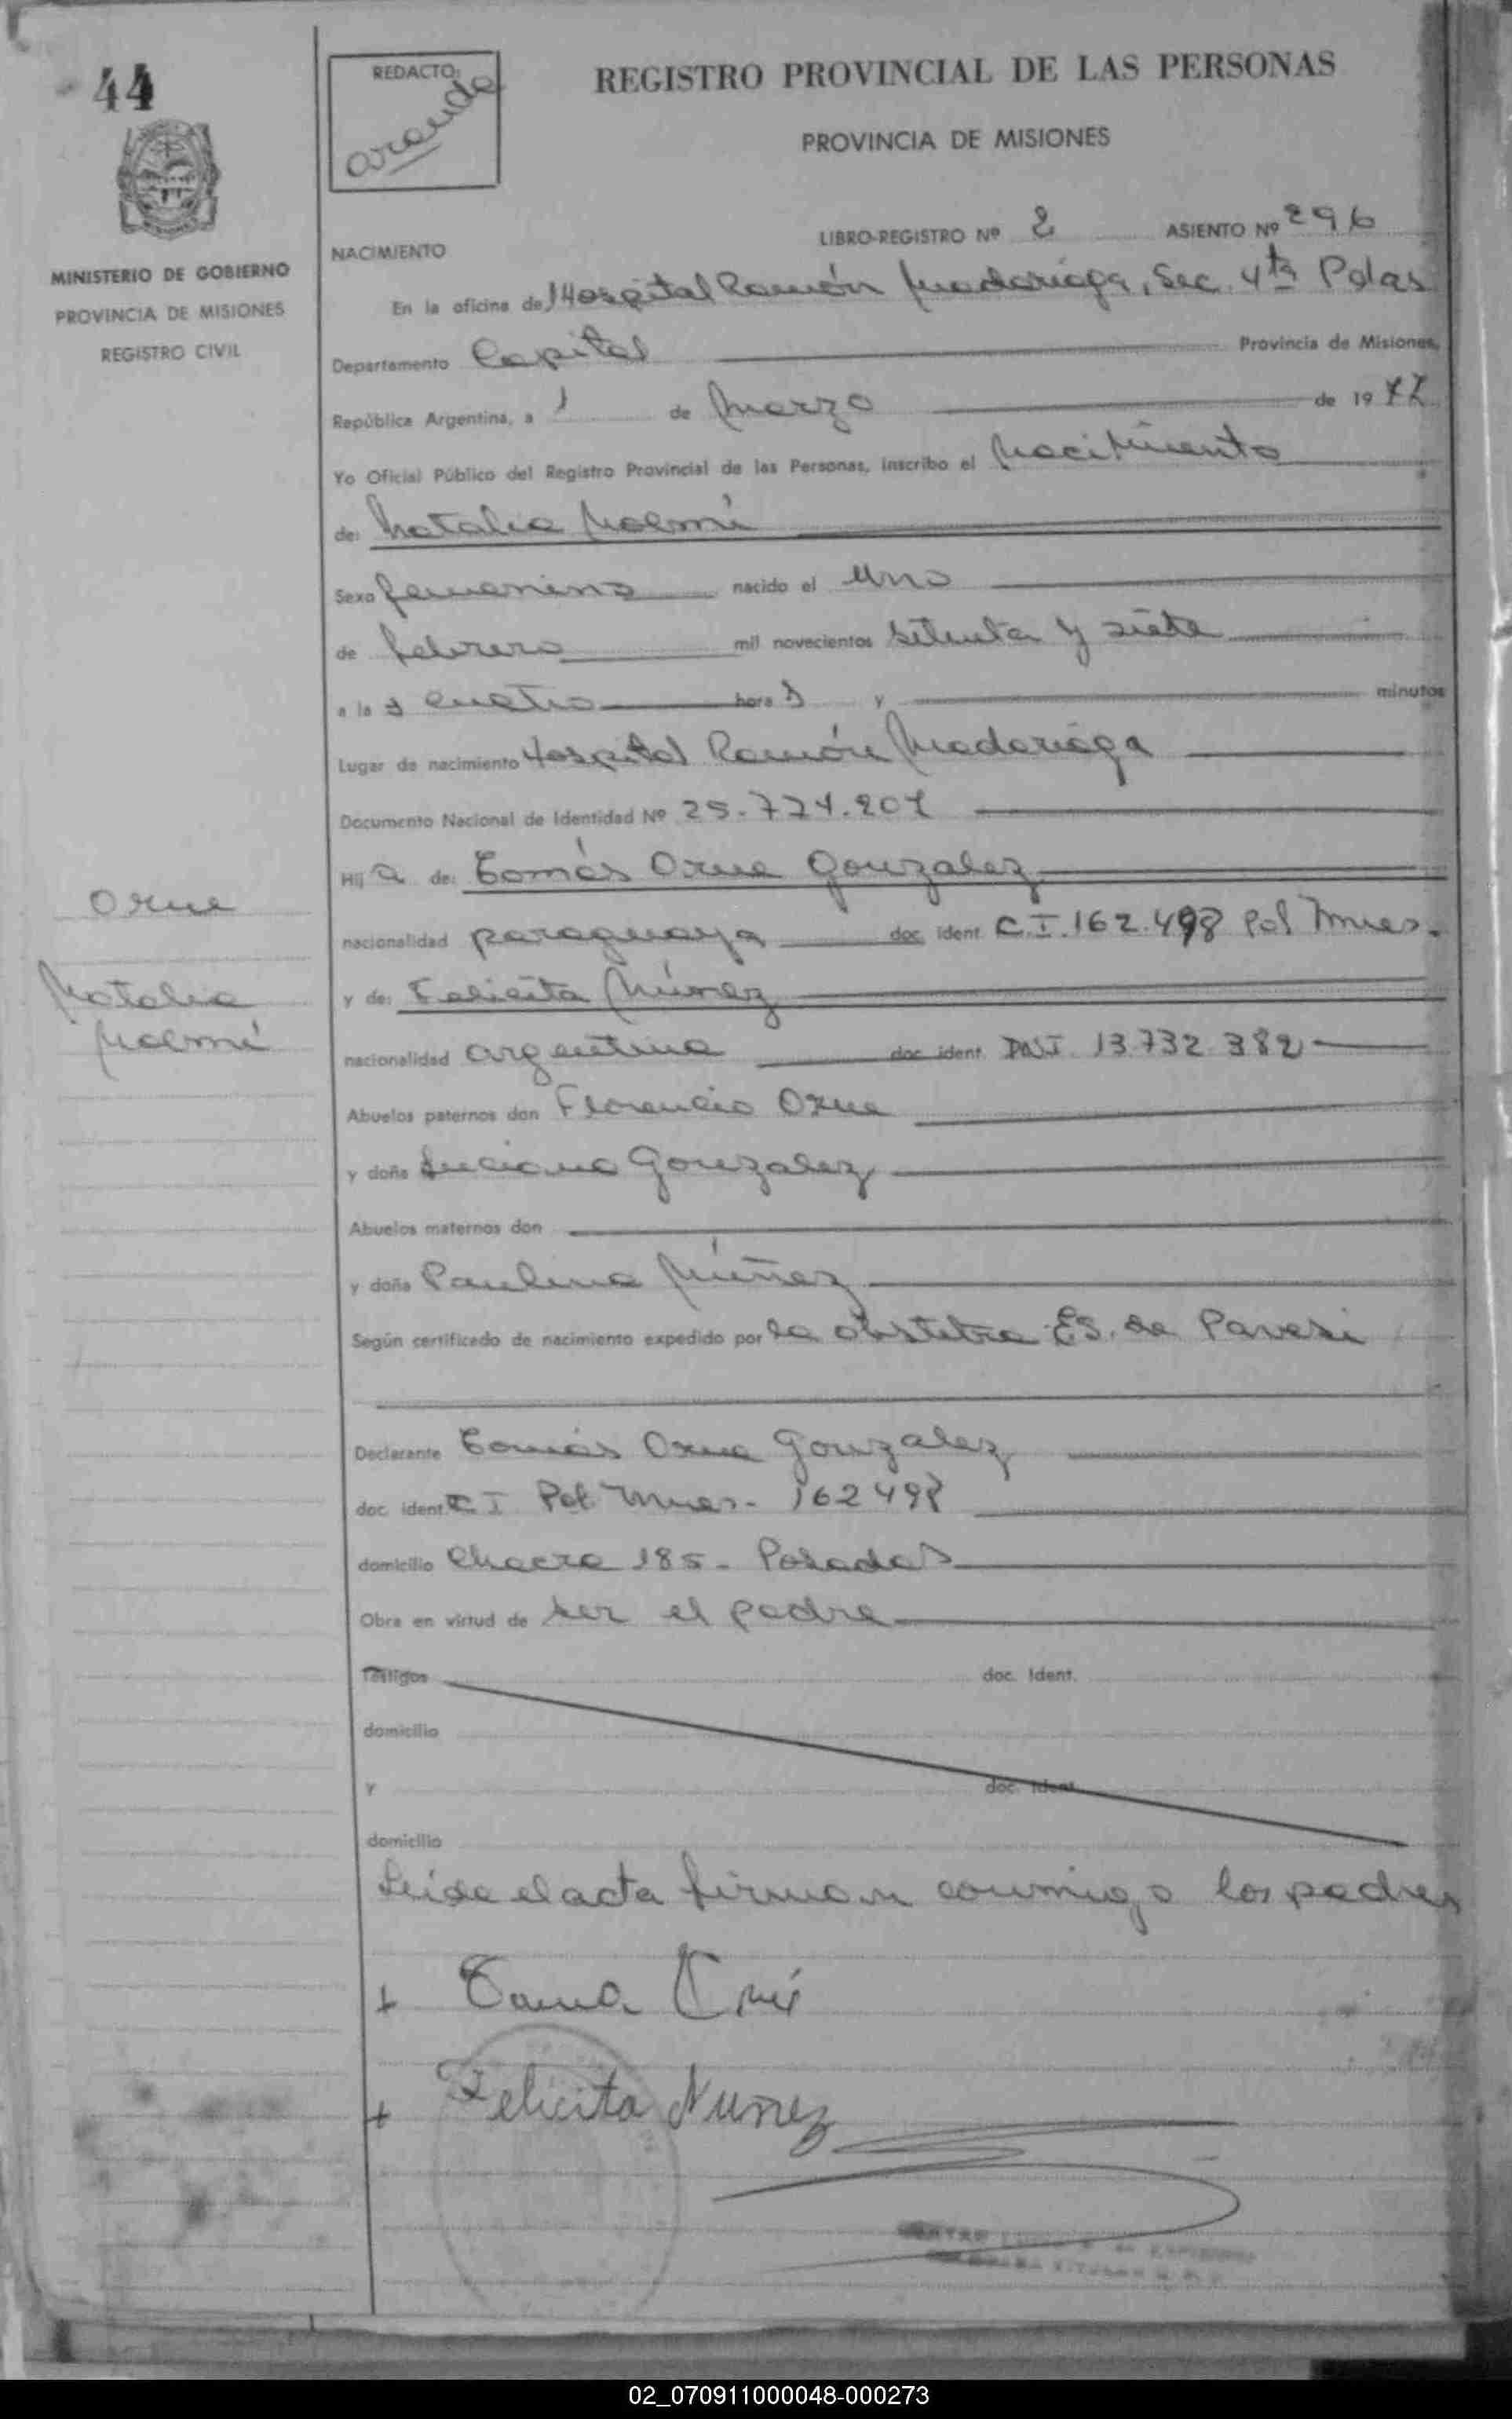 44
REDACTO:
REGISTRO PROVINCIAL DE LAS PERSONAS
PROVINCIA DE MISIONES
MINISTERIO DE GOBIERNO
PROVINCIA DE MISIONES
REGISTRO CIVIL
LIBRO-REGISTRO Nº 2 ASIENTO Nº 296
NACIMIENTO
En la oficina de Hospital Ramón Madariaga, Sec. 4ta Pdas
Departamento Capital Provincia de Misiones,
República Argentina, a 1 de Marzo de 1977
Yo Oficial Público del Registro Provincial de las Personas, inscribo el Nacimiento
de: Natalia Noemí
Sexo femenino nacido el Uno
de febrero mil novecientos setenta y siete
a las cuatro horas y minutos
Lugar de nacimiento Hospital Ramón Madariaga
Documento Nacional de Identidad Nº 25.724.207
Hija de: Tomás Orue Gonzalez
nacionalidad paraguaya doc. ident. C.I. 162.498 Pol Mnes.
y de: Felicita Núñez
nacionalidad argentina doc. ident. DNI. 13.732.382
Abuelos paternos don Florencio Orue
y doña Luciana Gonzalez
Abuelos maternos don
y doña Paulina Núñez
Según certificado de nacimiento expedido por la obstetra Es. de Pavesi
Declarante Tomás Orue Gonzalez
doc. ident. C I Pol. Mnes. 162498
domicilio Chacra 185 - Posadas
Obra en virtud de ser el padre
Testigos doc. Ident.
domicilio
y doc. Ident.
domicilio
Leída el acta firman conmigo los padres
Felicita Nuñez
Orue
Natalia
Noemí
02_070911000048-000273